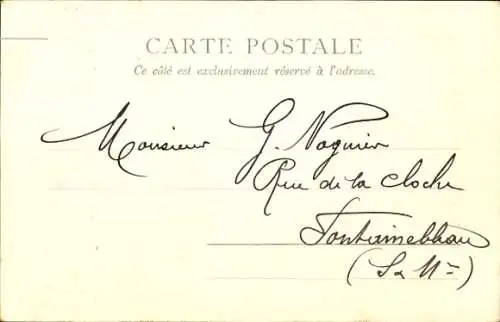 CARTE POSTALE
Ce côté est exclusivement réservé à l'adresse.
Monsieur G. Naguier
Rue de la Cloche
Fontainebleau
(S & Mne)